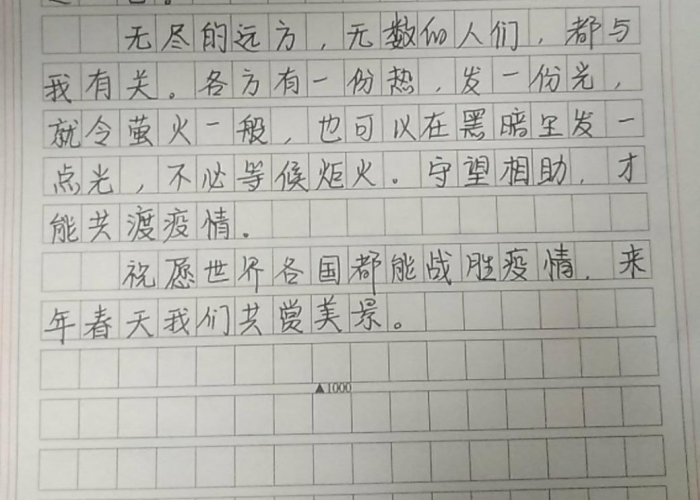 无尽的远方，无数的人们，都与
我有关。各方有一份热，发一份光，
就令萤火一般，也可以在黑暗里发一
点光，不必等候炬火。守望相助，才
能共渡疫情。
祝愿世界各国都能战胜疫情，来
年春天我们共赏美景。
▲1000